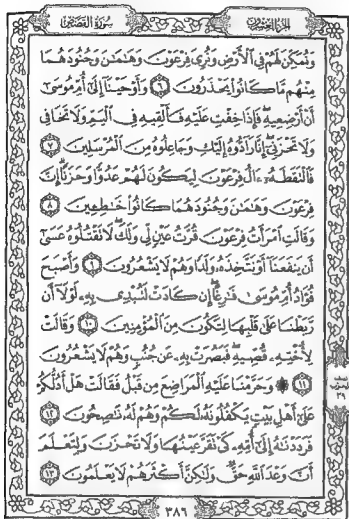 سُورَةُ القَصَصِ
الجزء العشرون
وَنُمَكِّنَ لَهُمْ فِي ٱلْأَرْضِ وَنُرِيَ فِرْعَوْنَ وَهَٰمَٰنَ وَجُنُودَهُمَا
مِنْهُم مَّا كَانُوا۟ يَحْذَرُونَ ٦ وَأَوْحَيْنَآ إِلَىٰٓ أُمِّ مُوسَىٰٓ
أَنْ أَرْضِعِيهِ فَإِذَا خِفْتِ عَلَيْهِ فَأَلْقِيهِ فِي ٱلْيَمِّ وَلَا تَخَافِي
وَلَا تَحْزَنِيٓ إِنَّا رَآدُّوهُ إِلَيْكِ وَجَاعِلُوهُ مِنَ ٱلْمُرْسَلِينَ ٧
فَٱلْتَقَطَهُۥٓ ءَالُ فِرْعَوْنَ لِيَكُونَ لَهُمْ عَدُوًّا وَحَزَنًا إِنَّ
فِرْعَوْنَ وَهَٰمَٰنَ وَجُنُودَهُمَا كَانُوا۟ خَٰطِـِٔينَ ٨
وَقَالَتِ ٱمْرَأَتُ فِرْعَوْنَ قُرَّتُ عَيْنٍ لِّي وَلَكَ لَا تَقْتُلُوهُ عَسَىٰٓ
أَن يَنفَعَنَآ أَوْ نَتَّخِذَهُۥ وَلَدًا وَهُمْ لَا يَشْعُرُونَ ٩ وَأَصْبَحَ
فُؤَادُ أُمِّ مُوسَىٰ فَٰرِغًا إِن كَادَتْ لَتُبْدِي بِهِۦ لَوْلَآ أَن
رَّبَطْنَا عَلَىٰ قَلْبِهَا لِتَكُونَ مِنَ ٱلْمُؤْمِنِينَ ١٠ وَقَالَتْ
لِأُخْتِهِۦ قُصِّيهِ فَبَصُرَتْ بِهِۦ عَن جُنُبٍ وَهُمْ لَا يَشْعُرُونَ
١١ ۞ وَحَرَّمْنَا عَلَيْهِ ٱلْمَرَاضِعَ مِن قَبْلُ فَقَالَتْ هَلْ أَدُلُّكُمْ
عَلَىٰٓ أَهْلِ بَيْتٍ يَكْفُلُونَهُۥ لَكُمْ وَهُمْ لَهُۥ نَٰصِحُونَ ١٢
فَرَدَدْنَٰهُ إِلَىٰٓ أُمِّهِۦ كَيْ تَقَرَّ عَيْنُهَا وَلَا تَحْزَنَ وَلِتَعْلَمَ
أَنَّ وَعْدَ ٱللَّهِ حَقٌّ وَلَٰكِنَّ أَكْثَرَهُمْ لَا يَعْلَمُونَ ١٣
٣٩
٣٨٦